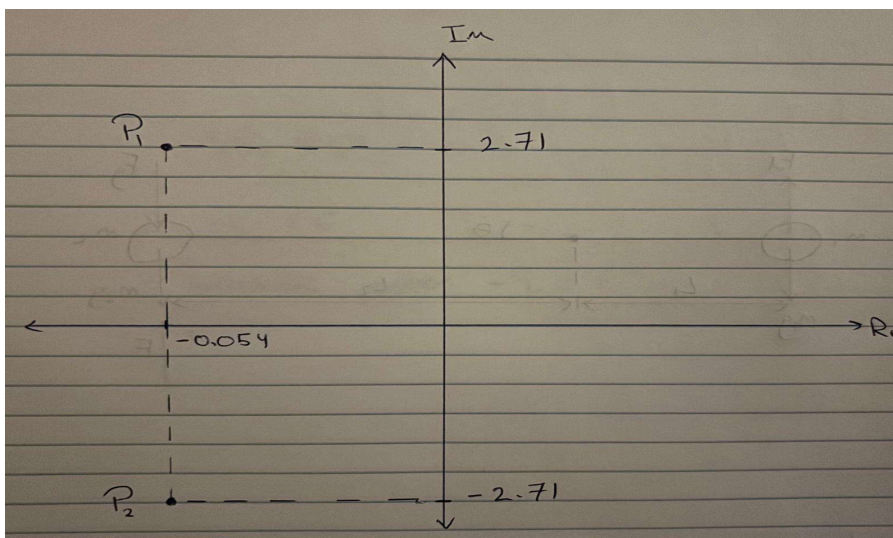 Im
P₁
2.71
-0.054
P₂
-2.71